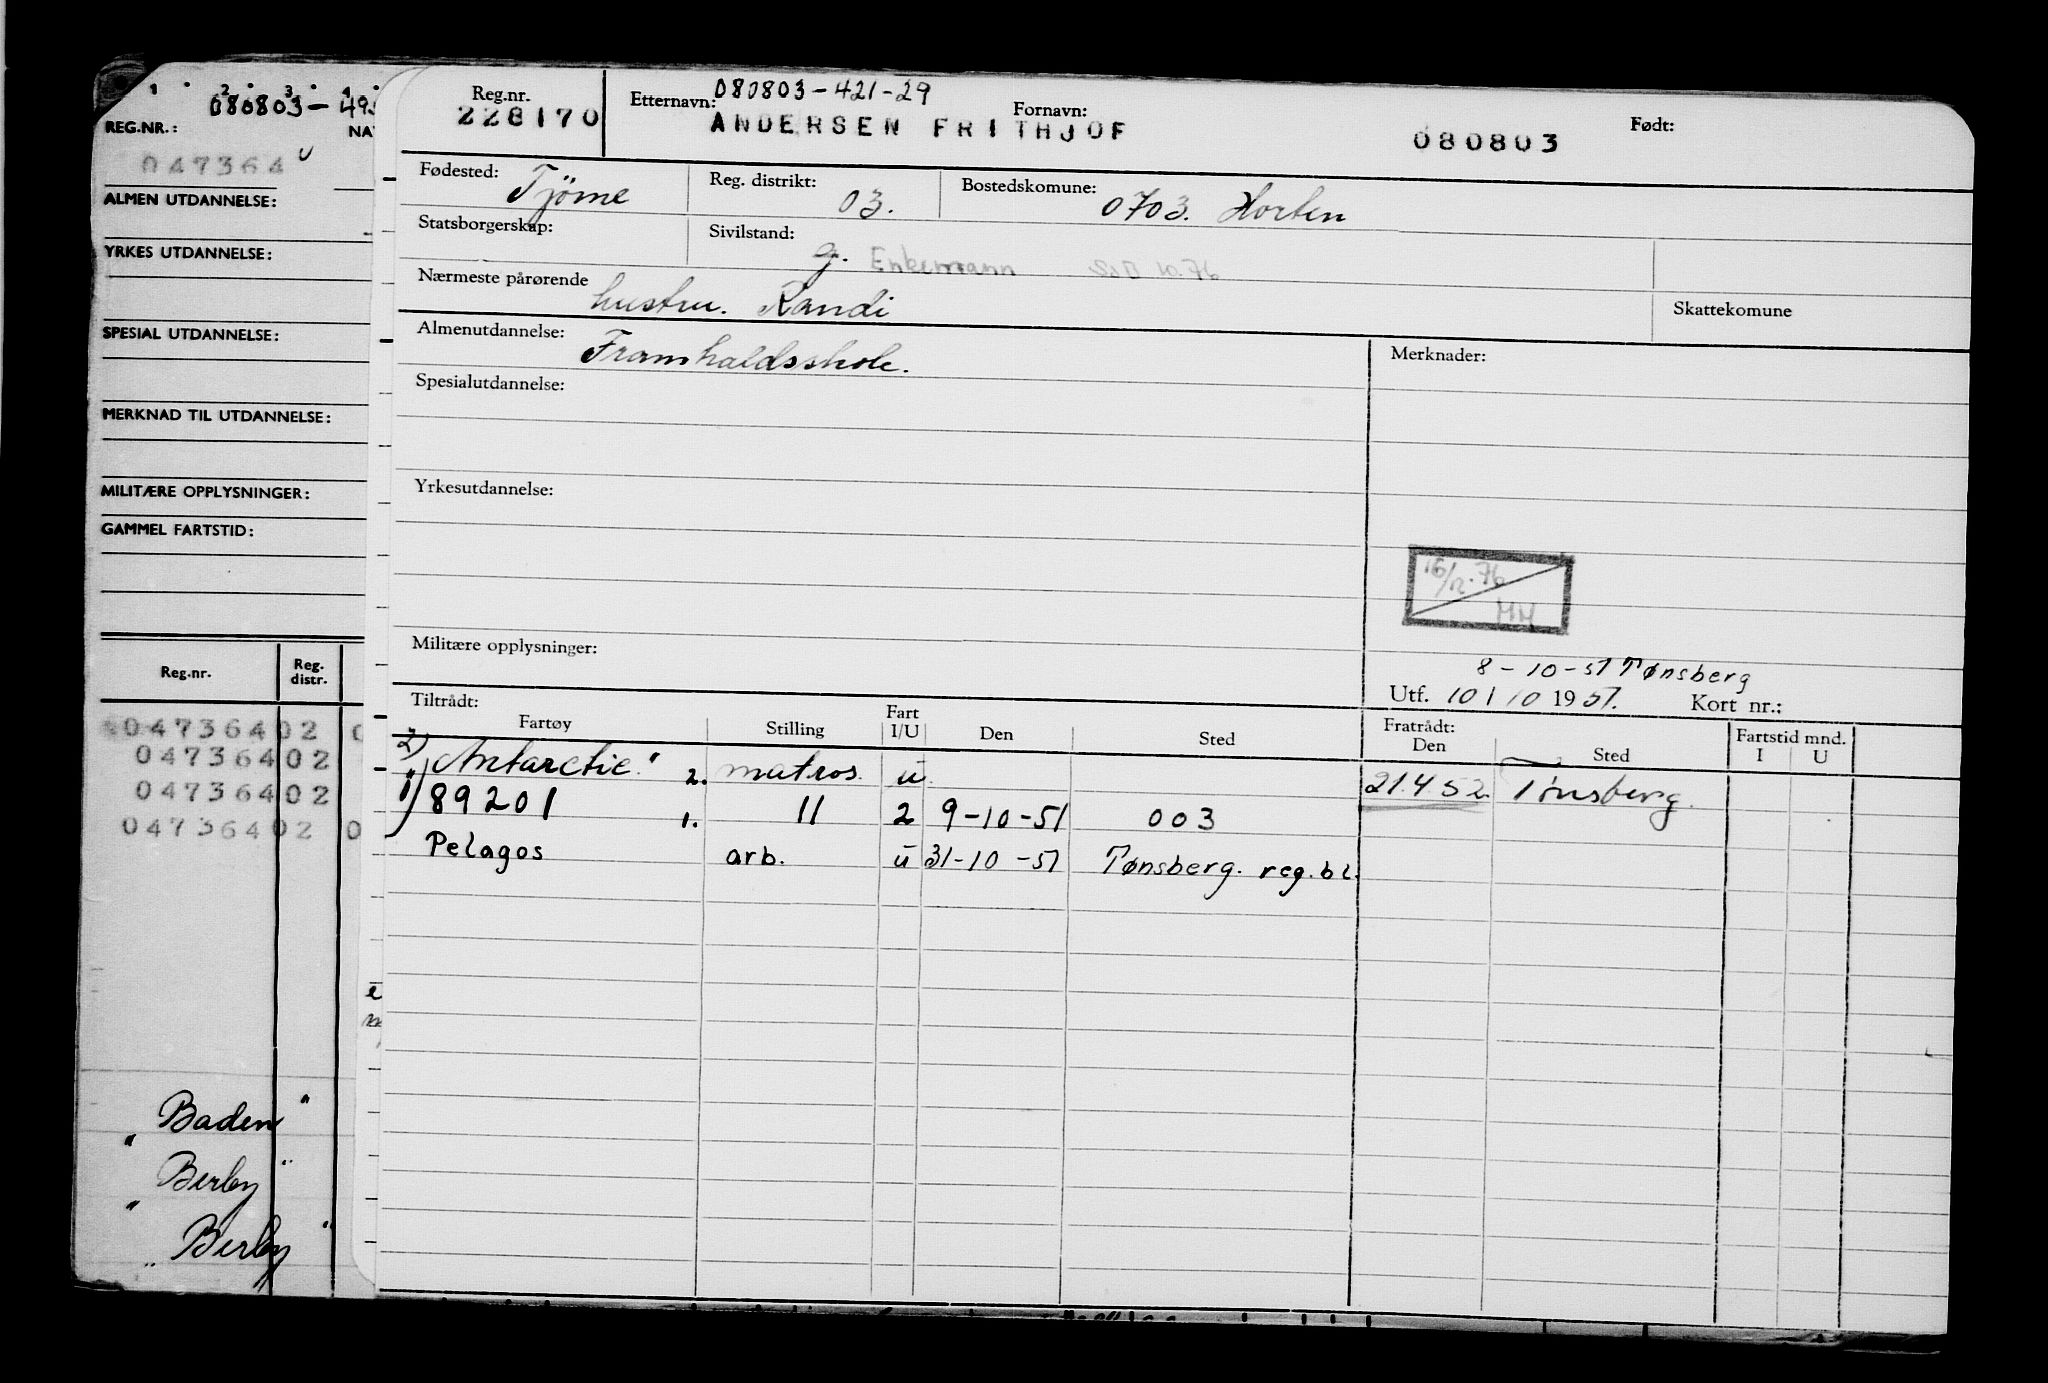 1 2 3 4
080803-49
REG.NR.: NA
047364
ALMEN UTDANNELSE:
YRKES UTDANNELSE:
SPESIAL UTDANNELSE:
MERKNAD TIL UTDANNELSE:
MILITÆRE OPPLYSNINGER:
GAMMEL FARTSTID:
Reg.nr. Reg. distr.
04736402 0
04736402
04736402
04736402 0
"Baden"
"Birby"
"Birby"
Reg.nr. Etternavn: 080803-421-29 Fornavn: Født:
228170 ANDERSEN FRITHJOF 080803
Fødested: Tjöme Reg. distrikt: 03. Bostedskomune: 0703. Horten
Statsborgerskap: Sivilstand: g. Enkemann 10.76
Nærmeste pårørende hustru. Randi Skattekomune
Almenutdannelse: Framhaldsskole. Merknader:
Spesialutdannelse:
Yrkesutdannelse:
16/12.76 MM
Militære opplysninger:
8-10-51 Tønsberg
Utf. 10 / 10 1951. Kort nr.:
Tiltrådt: Fratrådt: Fartstid mnd.
Fartøy Stilling Fart I/U Den Sted Den Sted I U
2) "Antarctic" 2. matros. u. 21.4.52. Tønsberg.
1) 89201 1. 11 2 9-10-51 003
Pelagos arb. u 31-10-51 Tønsberg. reg.bl.